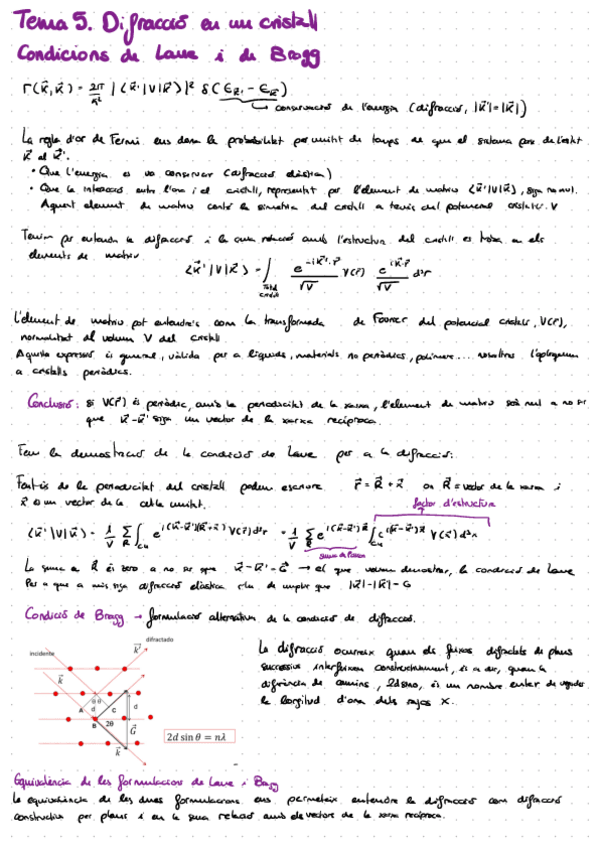 Tema 5. Difracció en un cristall
Condicions de Laue i de Bragg
Γ(k⃗',k⃗) = 2π/ħ² |⟨k⃗'|V|k⃗⟩|² δ(ε_k' - ε_k)
conservació de l'energia (difracció, |k⃗'|=|k⃗|)
La regla d'or de Fermi ens dona la probabilitat per unitat de temps de que el sistema pase de l'estat
k⃗ al k⃗'.
• Que l'energia es va conservar (difracció elàstica)
• Que la interacció entre l'ona i el cristall, representat per l'element de matriu ⟨k⃗'|V|k⃗⟩, sigui no nul.
Aquest element de matriu conté la simetria del cristall a través del potencial cristal·lí V
per entendre la difracció i la seva relació amb l'estructura del cristall es troba en els
elements de matriu
⟨k⃗'|V|k⃗⟩ = ∫ e^{-ik⃗'·r⃗}/√V V(r⃗) e^{ik⃗·r⃗}/√V d³r
Total cristall
L'element de matriu pot entendre's com la transformada de Fourier del potencial cristal·lí, V(r⃗),
normalitzat al volum V del cristall
Aquesta expressió és general, vàlida per a líquids, materials no periòdics, polímers.... nosaltres l'apliquem
a cristalls periòdics.
Conclusió: si V(r⃗) és periòdic, amb la periodicitat de la xarxa, l'element de matriu serà nul a no ser
que k⃗-k⃗' sigui un vector de la xarxa recíproca.
Fem la demostració de la condició de Laue per a la difracció:
de la periodicitat del cristall podem escriure r⃗ = R⃗ + x⃗ on R⃗ = vector de la xarxa i
x⃗ és un vector de la cel·la unitat.
factor d'estructura
⟨k⃗'|V|k⃗⟩ = 1/V Σ_R ∫_cel e^{i(k⃗-k⃗')(R⃗+x⃗)} V(r⃗) d³r = 1/V Σ_R e^{i(k⃗-k⃗')R⃗} ∫_cel e^{i(k⃗-k⃗')x⃗} V(x⃗) d³x
suma de
La suma a R⃗ és zero a no ser que k⃗-k⃗'=G⃗ → el que volíem demostrar, la condició de Laue
Per a que a més sigui difracció elàstica s'ha de complir que |k⃗|-|k⃗|= G
Condició de Bragg → formulació alternativa de la condició de difracció.
incidente
difractado
k⃗'
k⃗
θ θ
A d C d
B 2θ
G⃗
k⃗
2d sin θ = nλ
La difracció ocurreix quan els feixos difractats de plans
successius interfereixen constructivament, és a dir, quan la
diferència de camins, 2d sinθ, és un nombre enter de vegades
la longitud d'ona dels rajos X.
Equivalència de les formulacions de Laue i Bragg
La equivalència de les dues formulacions ens permeteix entendre la difracció com difracció
constructiva per plans i en la seua relació amb els vectors de la xarxa recíproca.